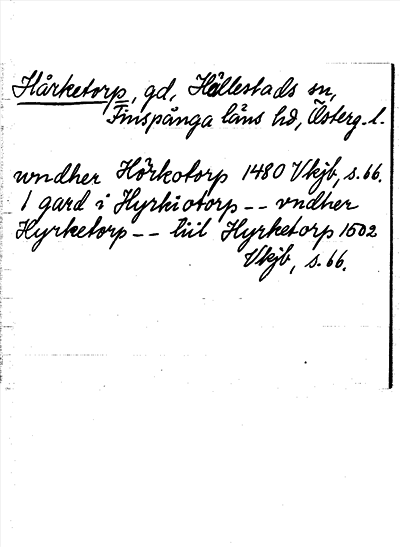 Hårketorp, gd, Hällestads sn,
Finspånga läns hd, Österg. l.
wndher Hörkotorp 1480 Vkjb, s. 66.
1 gard i Hyrkiotorp -- vndher
Hyrketorp -- tiil Hyrketorp 1502
Vkjb, s. 66.